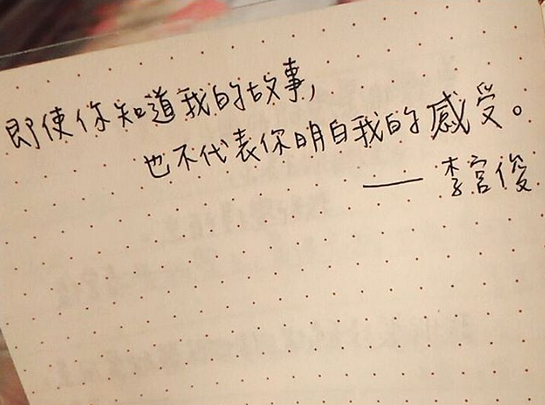 即使你知道我的故事,
也不代表你明白我的感受。
—— 李宫俊